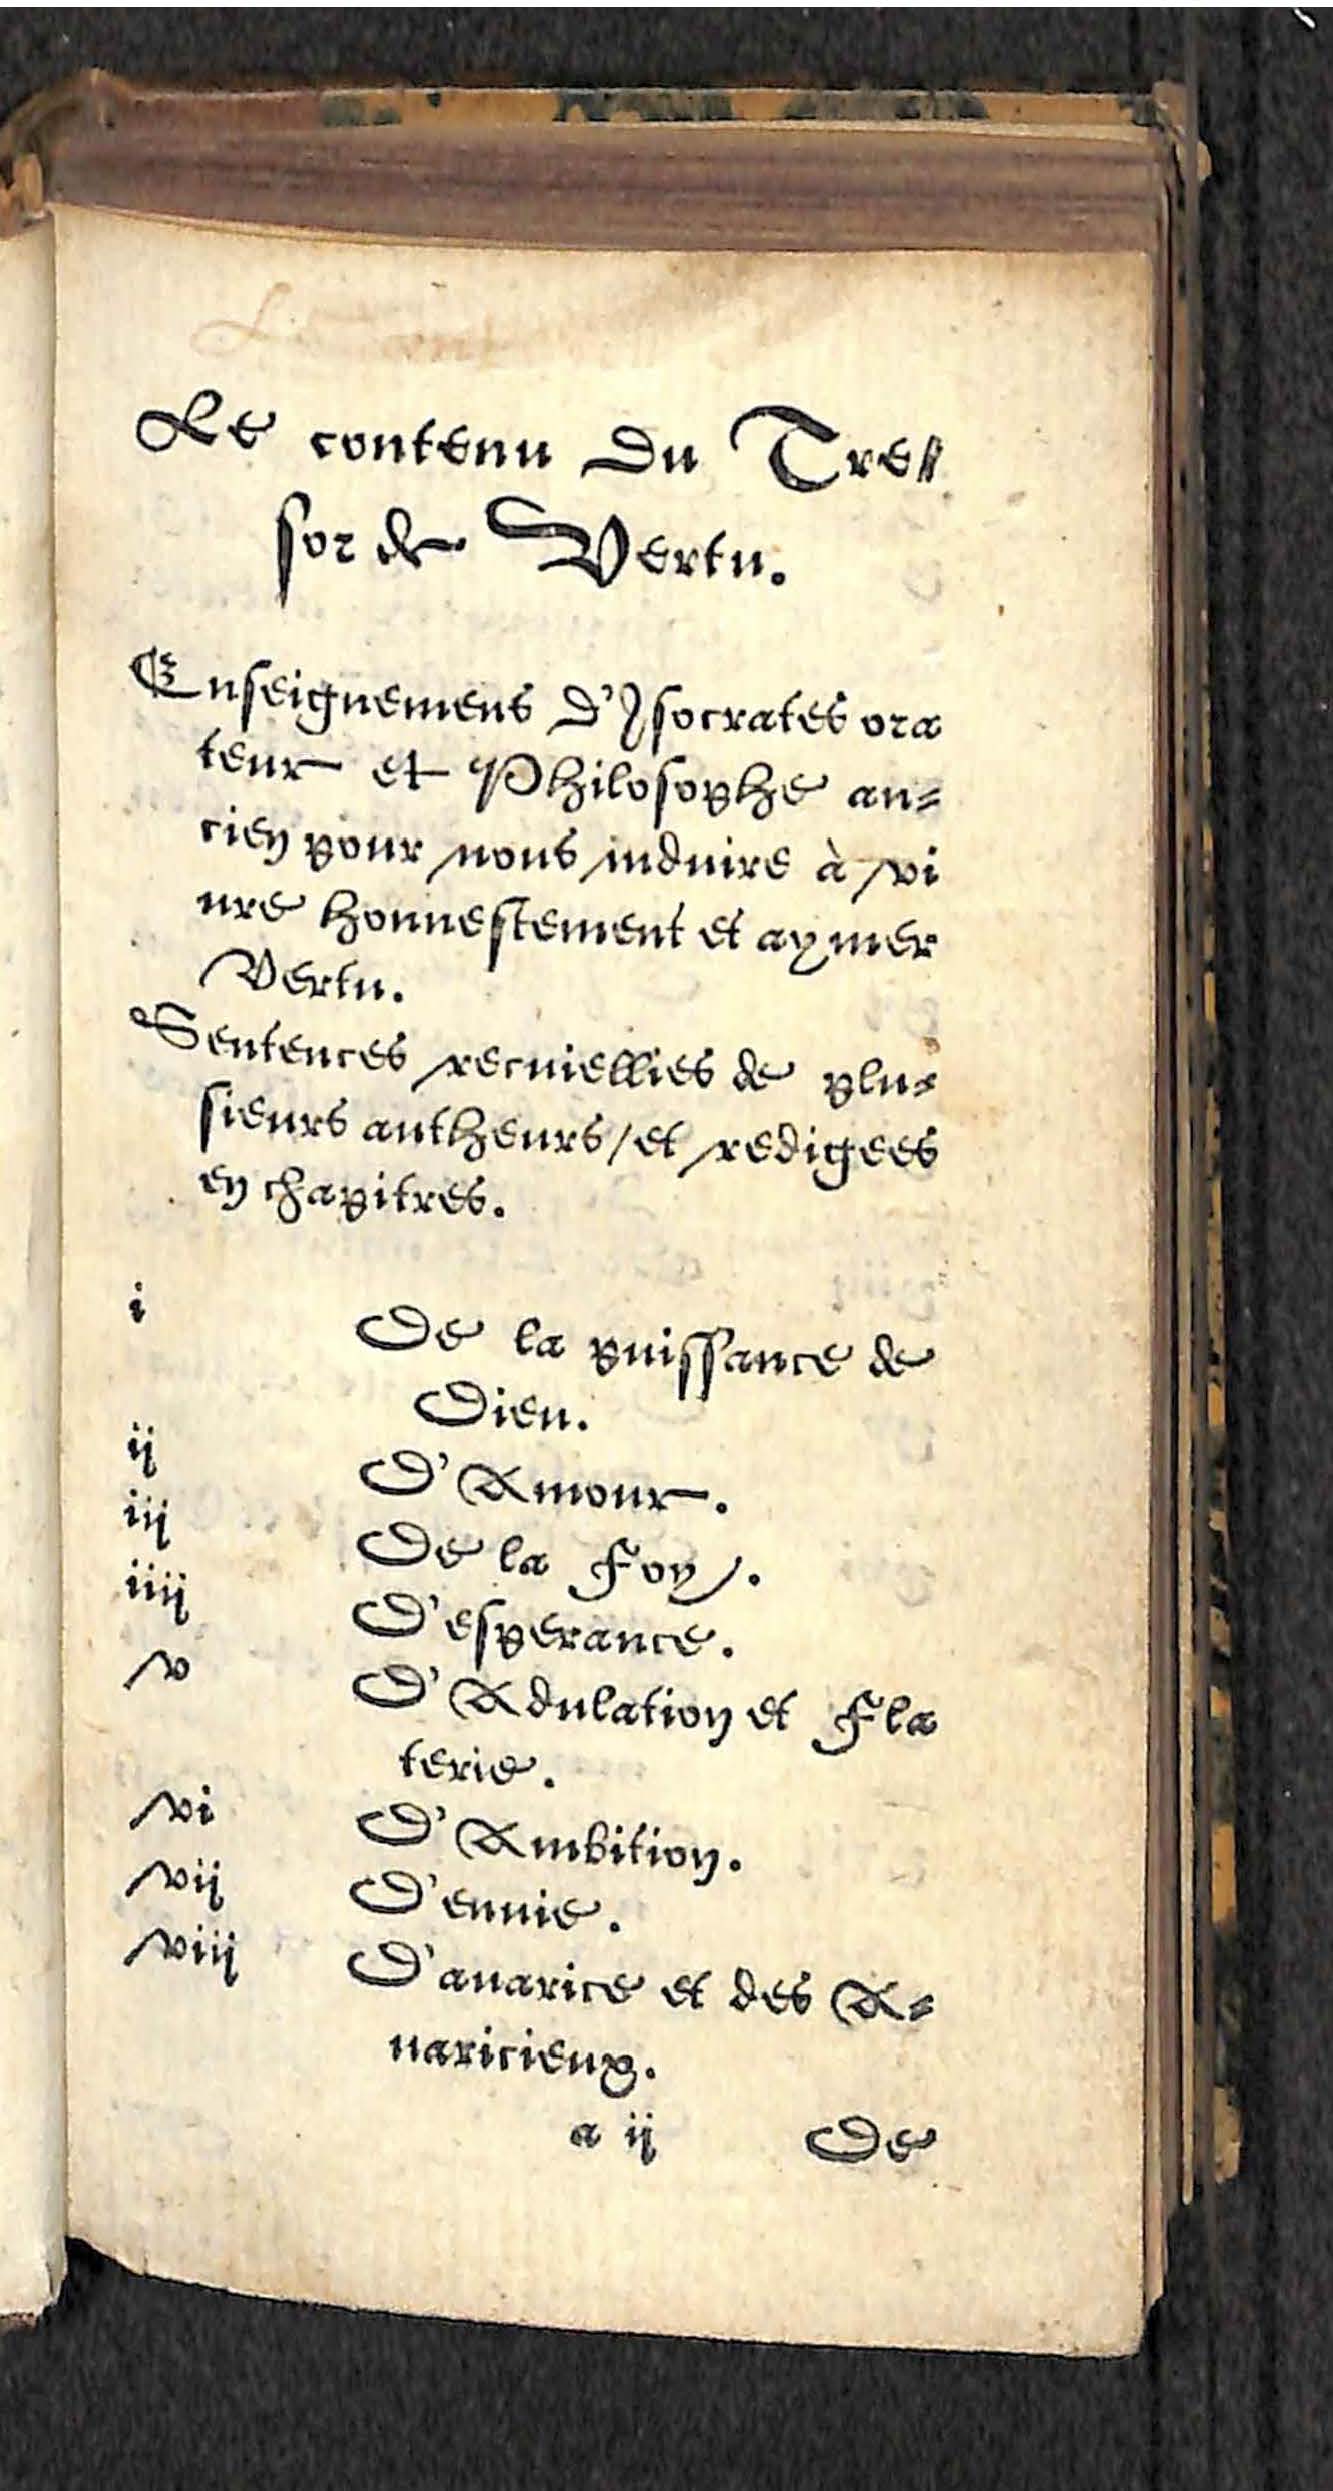 Le contenu du Tre⸗
sor de Vertu.
Enseignemens d'Isocrates ora
teur et Philosophe an⸗
cien pour nous induire à vi
ure honnestement et aymer
Vertu.
Sentences recuiellies de plu⸗
sieurs autheurs/et redigees
en chapitres.
i De la puissance de
Dieu.
ii D'Amour.
iii De la Foy.
iiii D'esperance.
v D'Adulation et Fla
terie.
vi D'Ambition.
vii D'enuie.
viii D'auarice et des A⸗
uaricieux.
a ii De